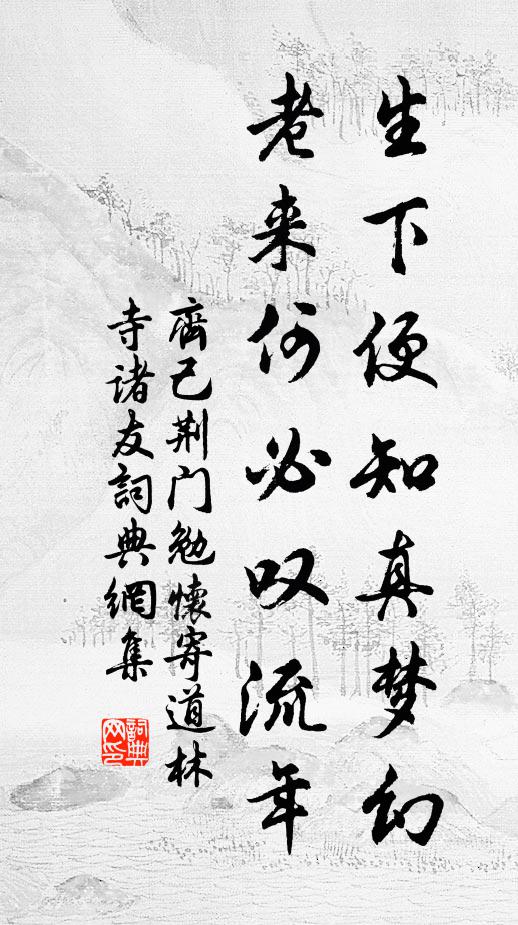 生下便知真梦幻
老来何必叹流年
齊己荆门勉懷寄道林
寺诸友詞典網集
詞典网印